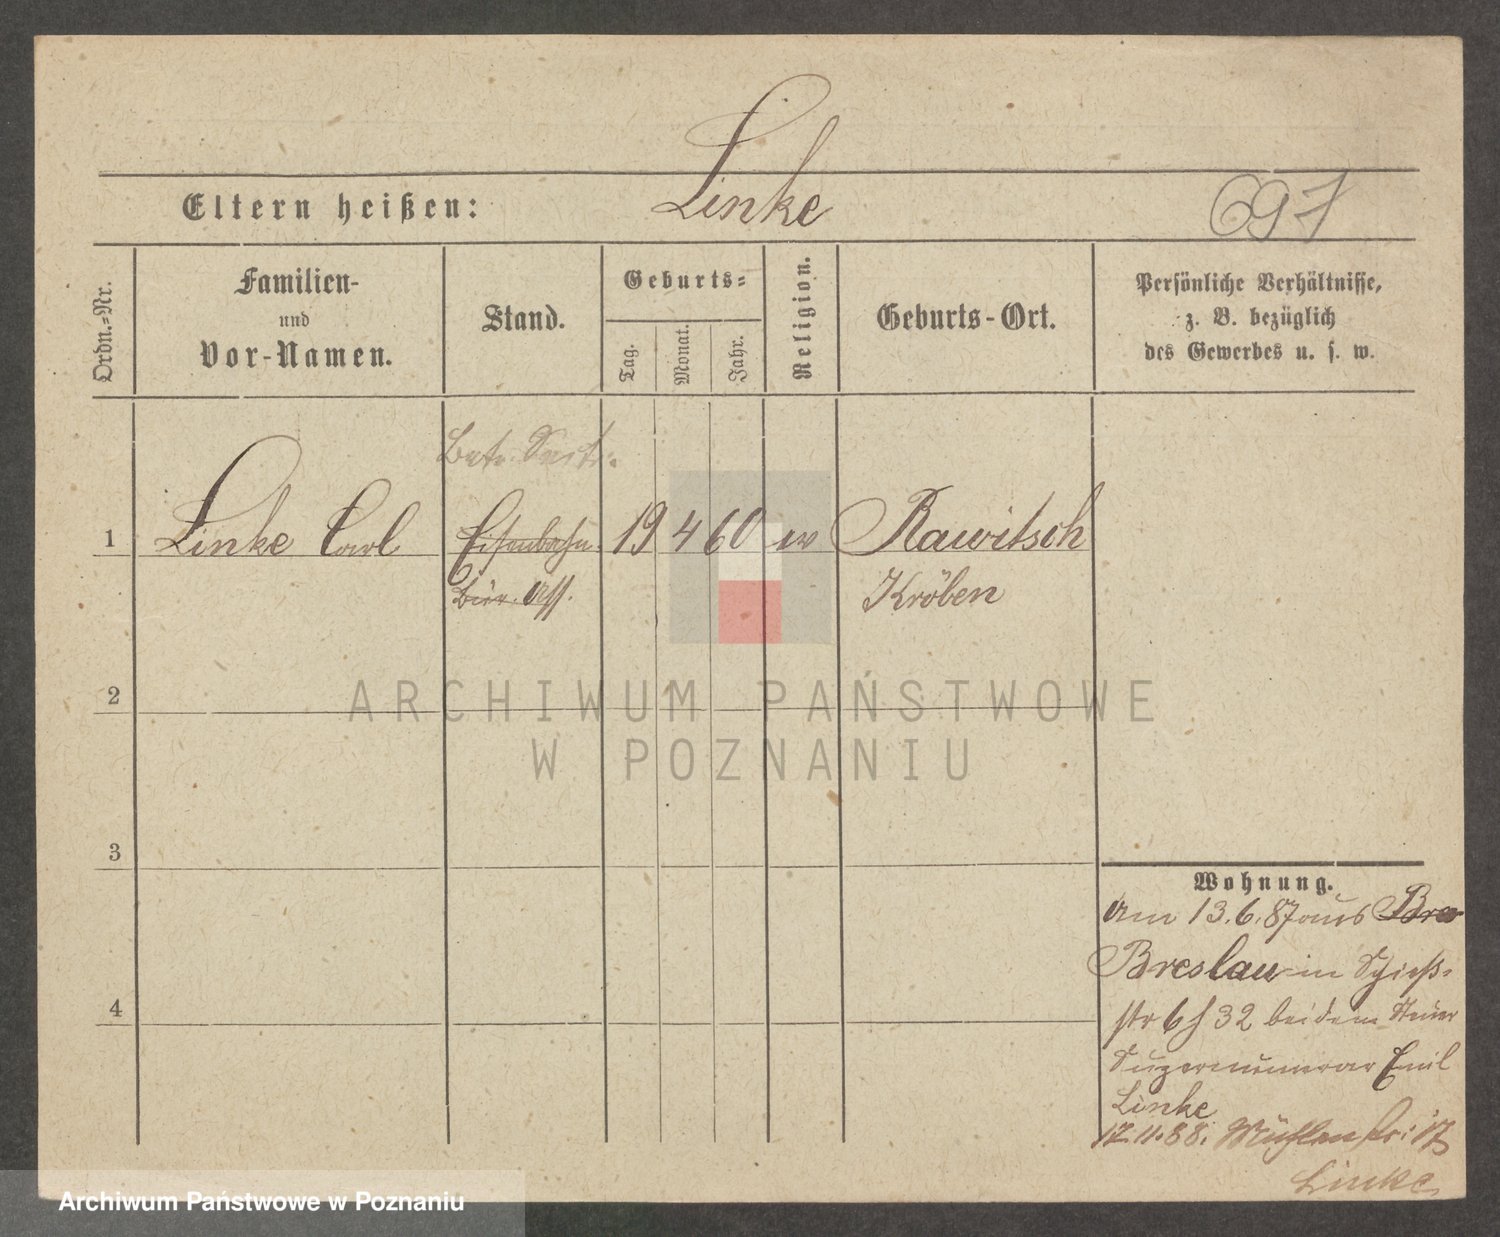 Linke
Eltern heißen:
691
Ordn.-Nr.
Familien-
und
Vor-Namen.
Stand.
Geburts-
Tag.
Monat.
Jahr.
Religion.
Geburts-Ort.
Persönliche Verhältnisse,
z. B. bezüglich
des Gewerbes u. s. w.
Betr. Sectr.
1 Linke Carl Eisenbahn- 19 4 60 ev Rawitsch
Bür. Ass. Kröben
2
ARCHIWUM PAŃSTWOWE
W POZNANIU
3
Wohnung.
Am 13.6.87 aus Bre
Breslau in Schieß-
4
str 6 32 bei dem Steuer
Supernumerar Emil
Linke
17.11.88. Mühlenstr: 17
Linke
Archiwum Państwowe w Poznaniu